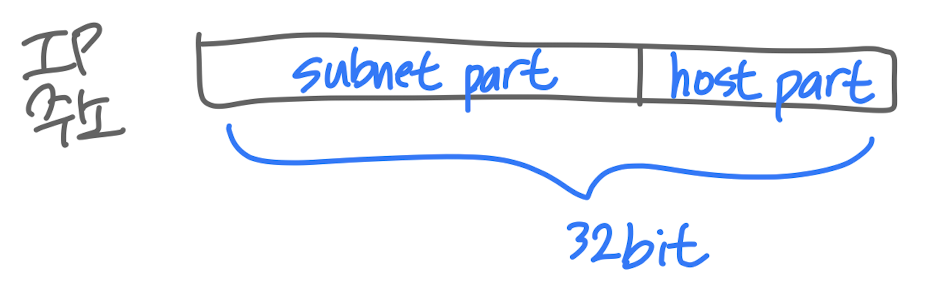 IP
주소
subnet part
host part
32bit